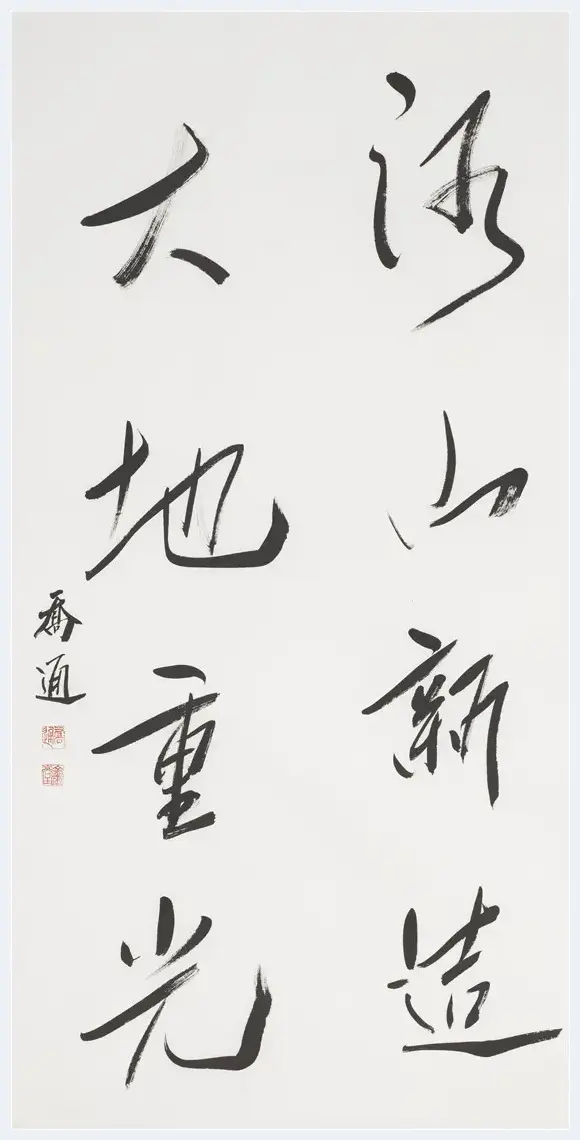 河山新造
大地重光
喬通